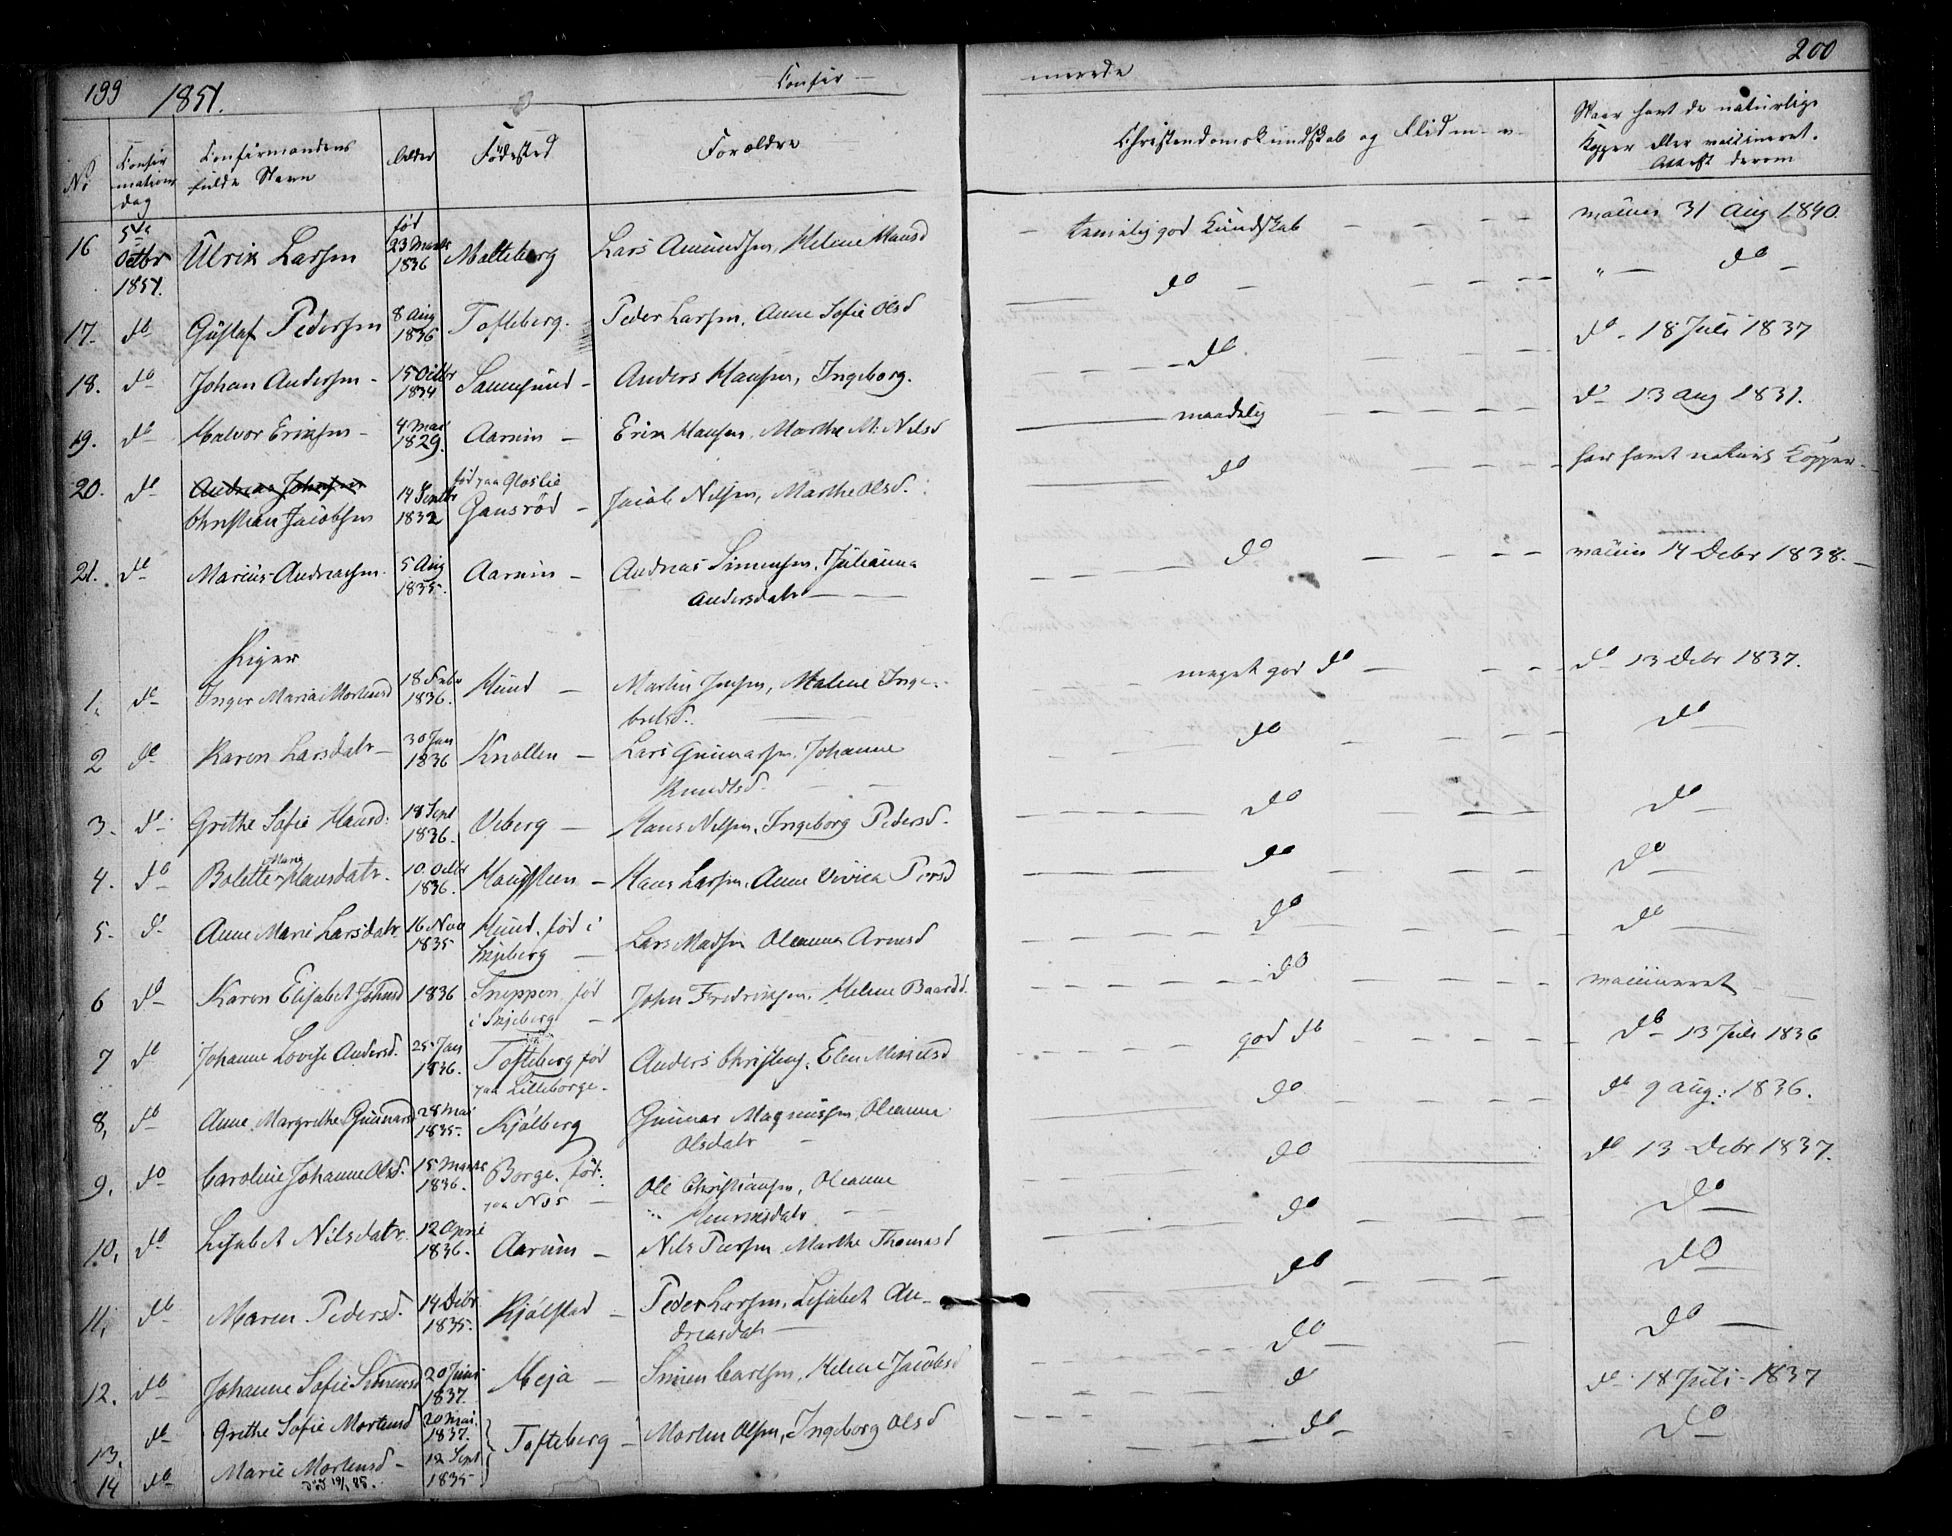 199 1851. Confir-
merede 200
No Confirmations dag Confirmandens fulde Navn Alder Fødested Forældre
Christendomskundskab og Flid m. v. Naar havt de naturlige Kopper eller vaccineret. Attest derom
16 5te Octbr 1851. Ulrik Larsen født 23 Marts 1836 Molteberg Lars Amundsen, Helene Hansd
temelig god Kundskab vaccin 31 Aug 1840.
17. do Gustaf Pedersen 8 Aug 1836 Tofteberg. Peder Larsen, Anne Sofie Olsd
do " do
18. do Johan Andersen 15 Octbr 1834 Sannesund Anders Hansen, Ingeborg.
do do 18 Juli 1837
19. do Halvor Eriksen 4 Mai 1829. Aarum Erik Hansen, Marthe M. Nilsd
maadelig do 13 Aug 1831.
20. do Andreas Johnsen Christian Jacobsen 14 Septbr 1832 født paa Gloslie Gansrød Jacob Nilsen, Marthe Olsd.
do har havt naturl Kopper
21. do Marius Andreasen 5 Aug 1835. Aarum Andreas Simensen, Julianna Andersdatr
do vaccin 14 Debr 1838.
Piger
1. do Inger Maria Mortensd 18 Febr 1836. Hund Martin Jensen, Malene Ingebretsd.
meget god do do 13 Debr 1837.
2 do Karen Larsdatr 30 Jan 1836 Knatten Lars Gunnarsen, Johanne Knudtsd.
do do
3. do Grethe Sofie Hansd. 18 Sept 1836. Viberg Hans Nilsen, Ingeborg Pedersd.
do do
4. do Bolette Marie Hansdatr. 10 Octbr 1836. Haugsteen Hans Larsen, Anne Vivica Persd
do do
5. do Anne Marie Larsdatr 16 Nov 1835 Hund, fød i Skjeberg Lars Madsen Oleanna Arnesd
do do
6 do Karen Elisabet Johnsd 1836 Sneppen, fød i Skjeberg John Fredriksen, Helene Baardsd.
do vaccineret
7 do Johanne Lovise Andersd. 25 Jan 1836. Tofteberg fød paa Lilleborge. Anders Christens, Elen Mikkelsd
god do do 13 Juli 1836
8, do Anne Margrethe Gunnarsd 28 Mai 1835. Kjølberg Gunnar Magnussen, Oleanna Olsdatr
do do 9 Aug: 1836.
9. do Caroline Johanne Olsd. 15 Marts 1836. Borge, fød paa Nøs Ole Christiansen, Oleanne Henriksdatr
do do 13 Debr 1837.
10, do Lisabet Nilsdatr 12 April 1836. Aarum Nils Persen Marthe Thomasd
do do
11, do Maren Pedersd. 14 Debr 1835. Kjølstad Peder Larsen, Lisabet Andreasdatr
do do
12. do Johanne Sofie Simensd 20 Juni 1837. Meja Simen Carlsen, Helene Jacobsd
do do
13. do Grethe Sofie Mortensd 20 Mai 1837. Tofteberg Morten Olsen, Ingeborg Olsd
do do 18 Juli 1837
14 do Marie Mortensd 12 Sept 1835
do do